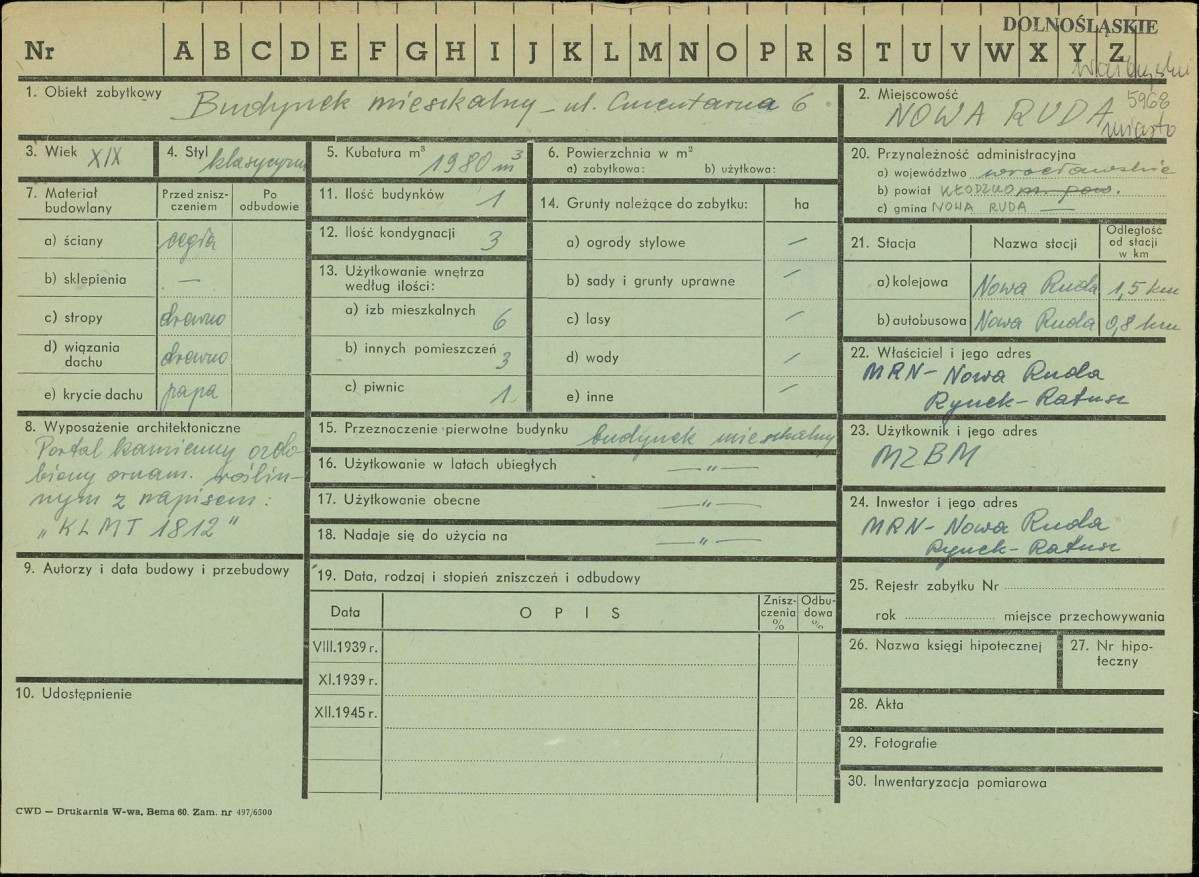 DOLNOŚLĄSKIE
Nr A B C D E F G H I J K L M N O P R S T U V W X Y Z
1. Obiekt zabytkowy Budynek mieszkalny - ul. Cmentarna 6
2. Miejscowość
NOWA RUDA
5968
miasto
3. Wiek XIX
4. Styl klasycyzm
5. Kubatura m³ 1980 m³
6. Powierzchnia w m²
a) zabytkowa: b) użytkowa:
7. Materiał budowlany
Przed zniszczeniem
Po odbudowie
a) ściany cegła
b) sklepienia —
c) stropy drewno
d) wiązania dachu drewno
e) krycie dachu papa
8. Wyposażenie architektoniczne
Portal kamienny ozdo-
biony ornam. roślin-
nym z napisem:
"KLMT 1812"
9. Autorzy i data budowy i przebudowy
10. Udostępnienie
11. Ilość budynków 1
12. Ilość kondygnacji 3
13. Użytkowanie wnętrza
według ilości:
a) izb mieszkalnych 6
b) innych pomieszczeń 3
c) piwnic 1
14. Grunty należące do zabytku: ha
a) ogrody stylowe —
b) sady i grunty uprawne —
c) lasy —
d) wody —
e) inne —
15. Przeznoczenie pierwotne budynku budynek mieszkalny
16. Użytkowanie w latach ubiegłych —"—
17. Użytkowanie obecne —"—
18. Nadaje się do użycia na —"—
19. Data, rodzaj i stopień zniszczeń i odbudowy
Data OPIS Zniszczenia % Odbudowa %
VIII.1939 r.
XI.1939 r.
XII.1945 r.
20. Przynależność administracyjna
a) województwo wrocławskie
b) powiat KŁODZKO m. pow.
c) gmina NOWA RUDA —
21. Stacja Nazwa stacji Odległość od stacji w km
a) kolejowa Nowa Ruda 1,5 km
b) autobusowa Nowa Ruda 0,8 km
22. Właściciel i jego adres
MRN - Nowa Ruda
Rynek - Ratusz
23. Użytkownik i jego adres
MZBM
24. Inwestor i jego adres
MRN - Nowa Ruda
Rynek - Ratusz
25. Rejestr zabytku Nr
rok miejsce przechowywania
26. Nazwa księgi hipotecznej
27. Nr hipo-
teczny
28. Akta
29. Fotografie
30. Inwentaryzacja pomiarowa
CWD — Drukarnia W-wa, Bema 60. Zam. nr 497/6500